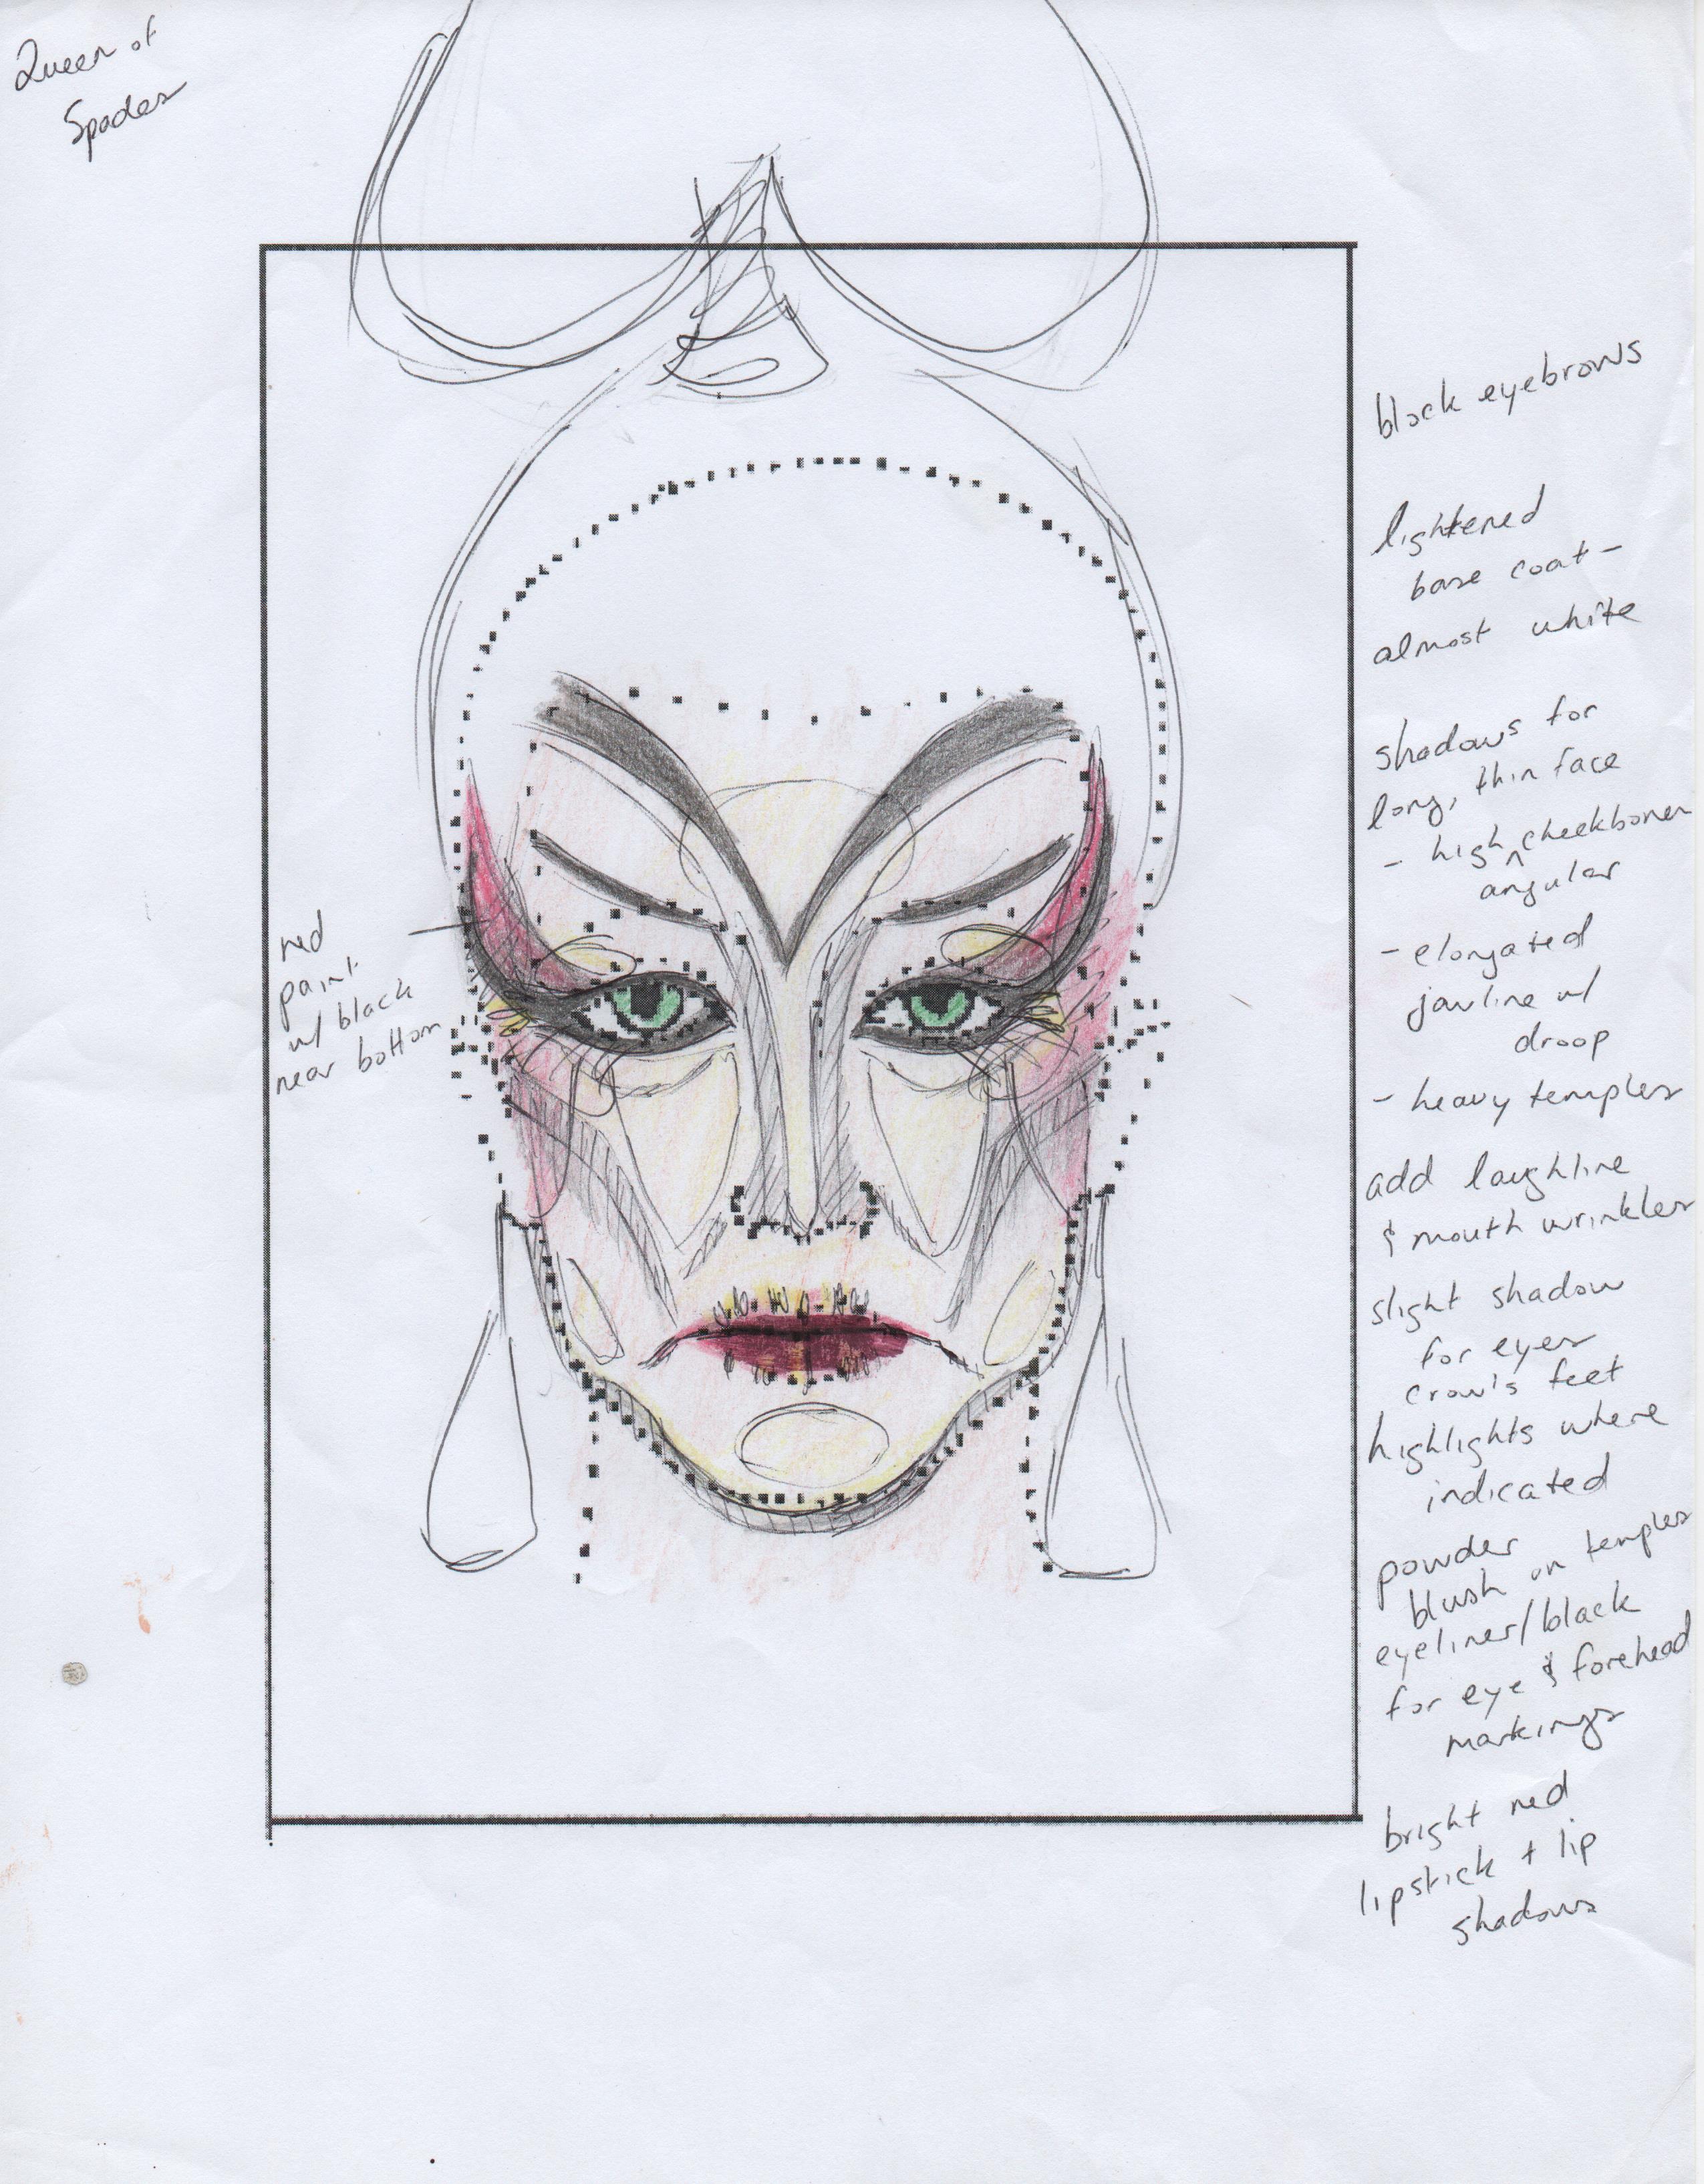 Queen of
Spades
black eyebrows
lightened
base coat -
almost white
shadows for
long, thin face
- high ^ cheekbones
angular
- elongated
jawline w/
droop
- heavy temples
add laughline
& mouth wrinkles
slight shadow
for eyes
crow's feet
highlights where
indicated
powder
blush on temples
eyeliner/black
for eye & forehead
markings
bright red
lipstick + lip
shadows
red
paint
w/ black
near bottom